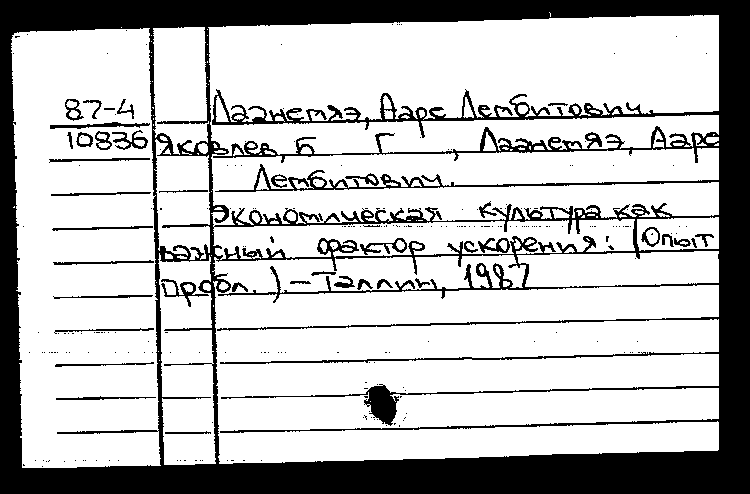 87-4 Лаанемяэ, Ааре Лембитович.
10836 Яковлев, Б Г , Лаанемяэ, Ааре
Лембитович.
Экономическая культура как
важный фактор ускорения: (Опыт
пробл.).—Таллин, 1987